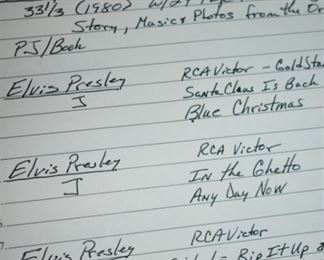 33⅓ (1980) W/24
Story, Music & Photos from the Or
PJ/Book
Elvis Presley RCA Victor - Gold Sta
J Santa Claus Is Back
Blue Christmas
Elvis Presley RCA Victor
J In the Ghetto
Any Day Now
7. RCA Victor
Elvis Presley Rip It Up